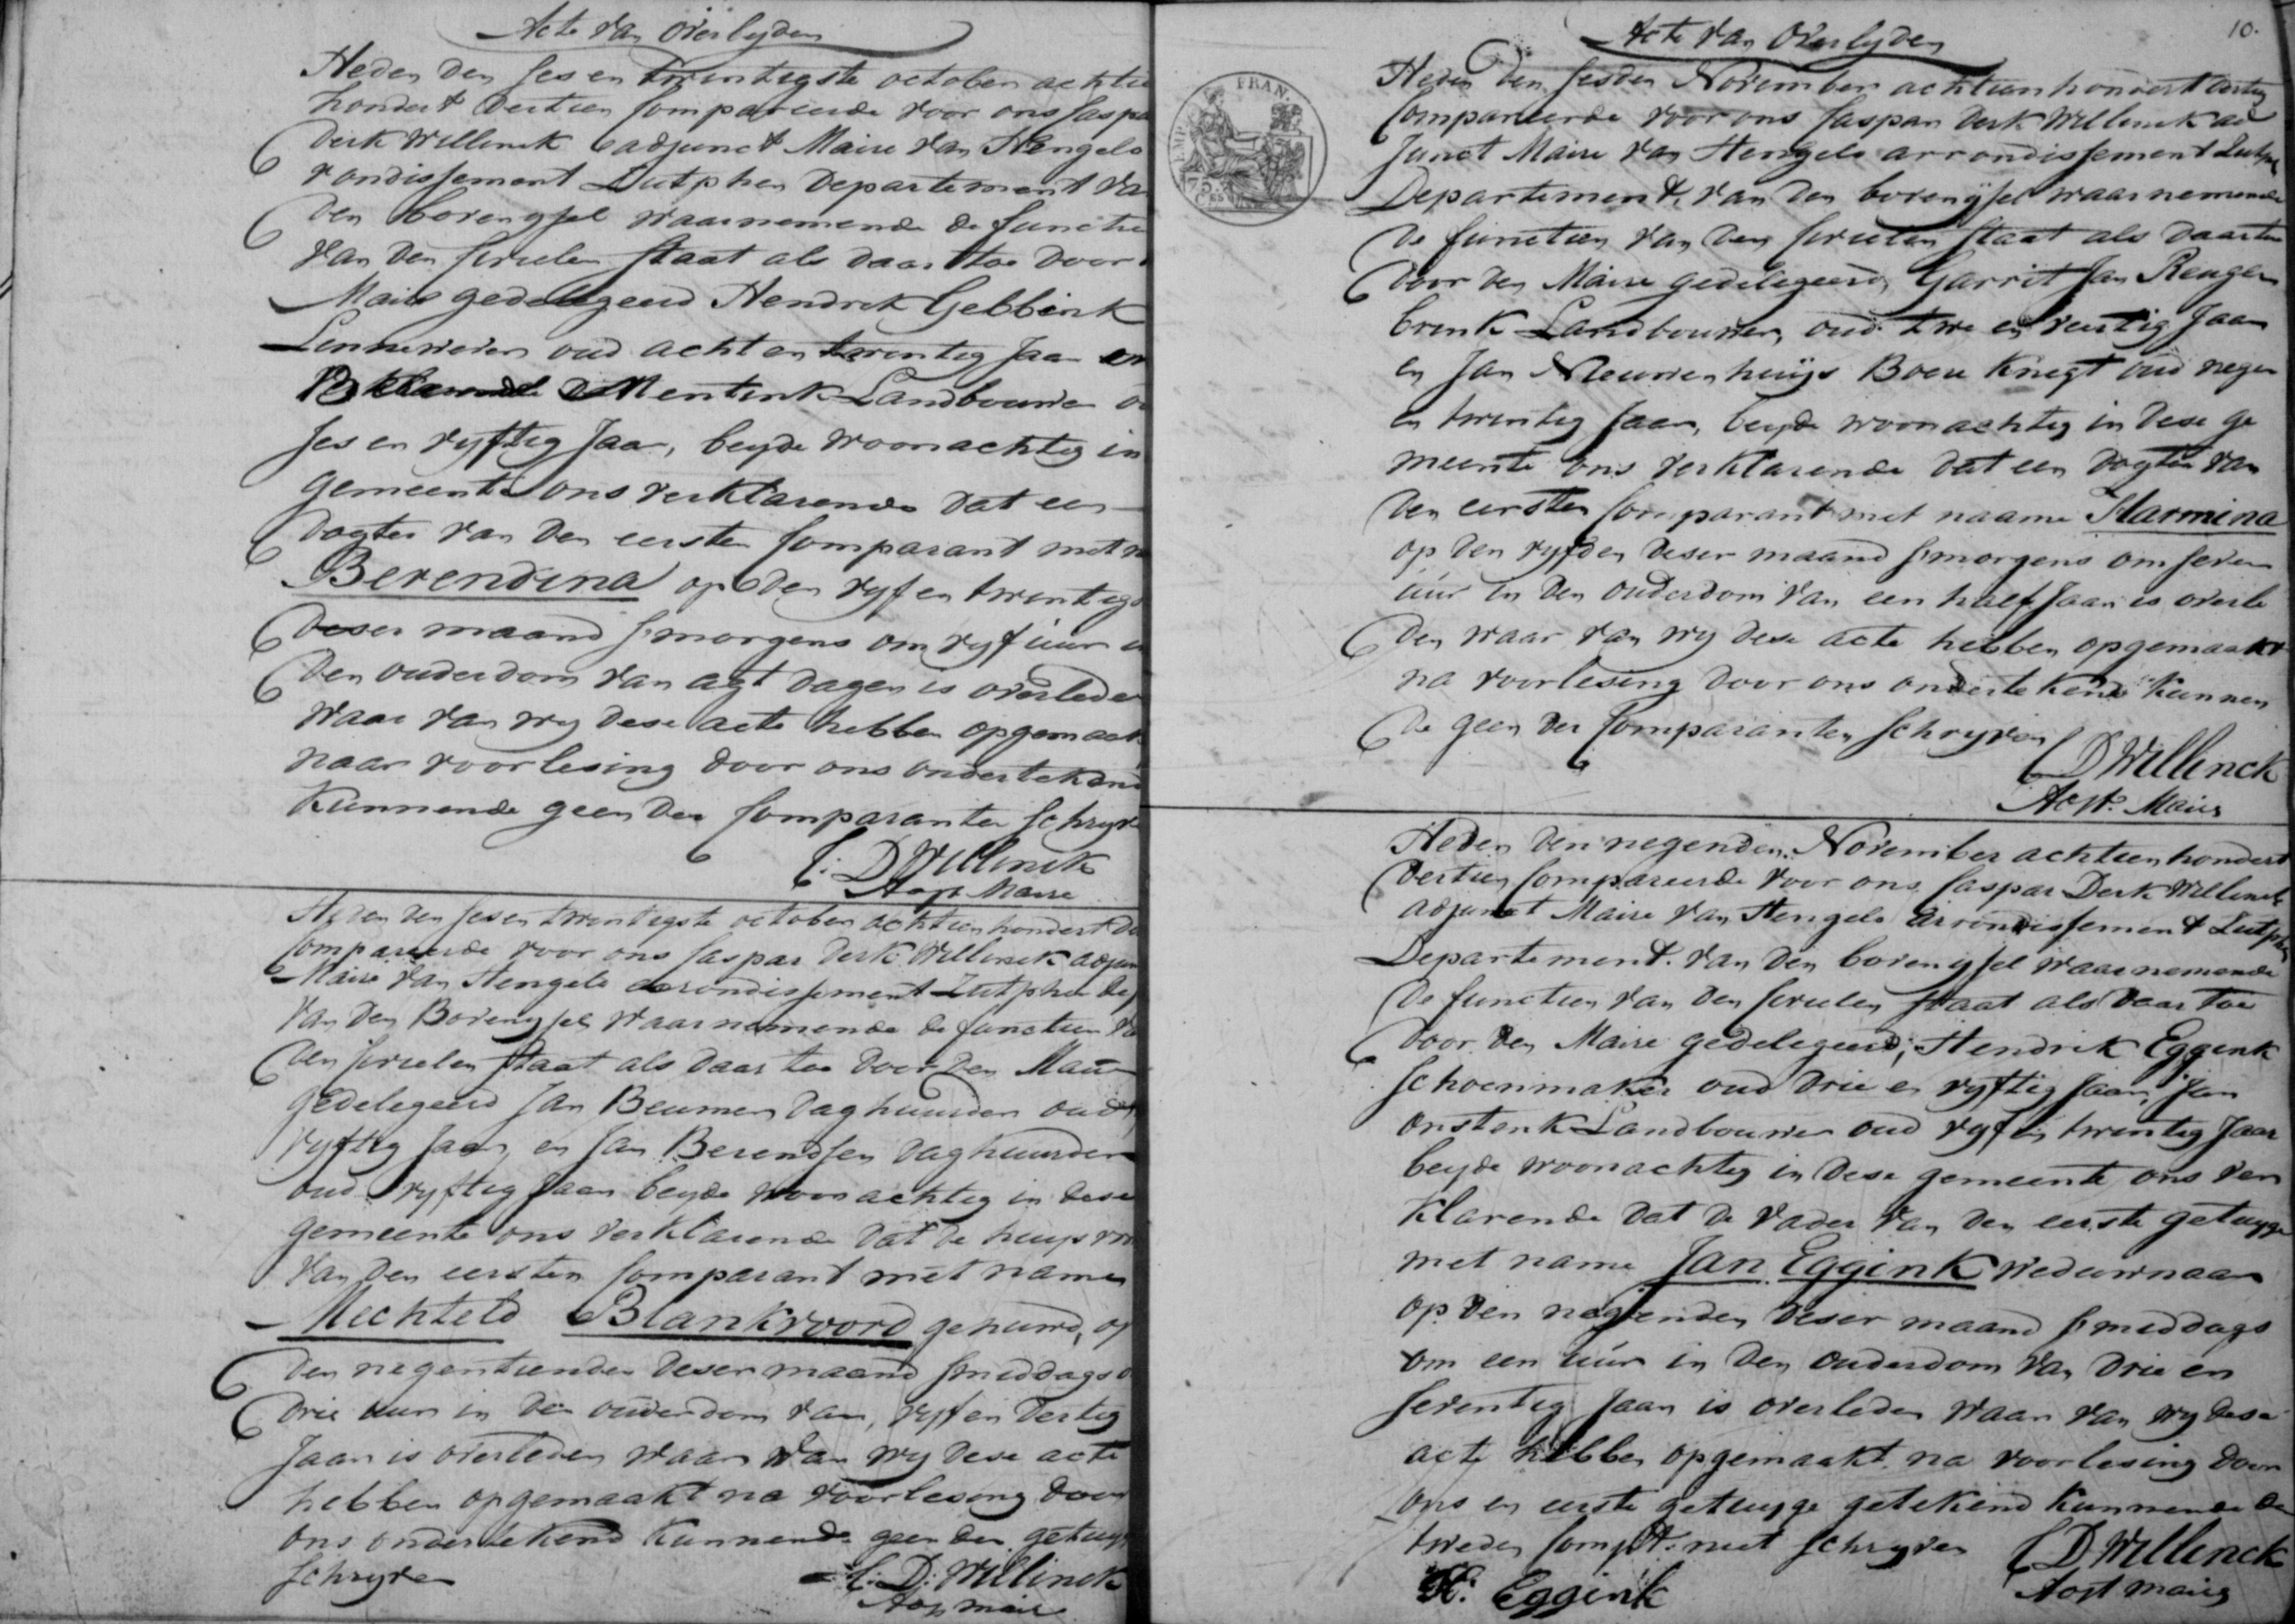 Acte van overlyden
Heden den ses en twintigste october achtie
hondert dertien Compareerde voor ons Caspa
Derk Willenck adjunct Maire van Hengelo
rondissement Zutphen Departement va
den bovenyssel waarnemende de functie
van den Civielen staat als daar toe door
Maire gedelegeerd Hendrik Gebbink
Linnewever oud acht en twintig Jaar en
Mentink Landbouwer
ses en vyftig Jaar, beyde woonachtig in
gemeente ons verklarende dat een
dogter van den eersten Comparant met
Berendina op den vyf en twintigs
deser maand smorgens om vyf uur
den ouderdom van agt dagen is overleden
waar van wy dese acte hebben opgemaak
naar voorlesing door ons ondertekend
kunnende geen der Comparanten schryve
C: D Willinck
Adjt Maire
Heden den ses en twintigste october achtien hondert de
Compareerde voor ons Caspar Derk Willinck adjun
Maire van Hengelo arrondissement Zutphen dep
van den Bovenyssel waarnemende de functien va
den Civielen staat als daar toe door den Maire
gedelegeerd Jan Beumer daghuurder oud
vyftig Jaar, en Jan Berendsen daghuurder
oud vyftig Jaar beyde woonachtig in dese
gemeente ons verklarende dat de huysvro
van den eersten Comparant met namen
Mechteld Blankvoord genaamd, op
den negentienden deser maand smiddags
drie uur in den ouderdom van, vyf en dertig
Jaar is overleden waar van wy dese acte
hebben opgemaakt na voorlesing door
ons ondertekend kunnende geen der getuyg
schryven
C: D: Willinck
Adjt maire
10.
Acte van Overlyden
Heden den sesden November achtien hondert dertien
Compareerde voor ons Caspar Derk Willinck ad
Junct Maire van Hengelo arrondissement Zutphe
Departement van den bovenyssel waarnemende
de functien van den Civielen staat als daartoe
door den Maire gedelegeerd, Garrit Jan Renge
brink Landbouwer, oud twe en veertig Jaar
en Jan Nieuwenhuys Boere knegt oud negen
en twintig Jaar, beyde woonachtig in dese ge
meente ons verklarende dat een dogter van
den eersten Comparant met naame Harmina
op den vyfden deser maand smorgens om seven
uur in den ouderdom van een half Jaar is overle
den waar van wy dese acte hebben opgemaakt
na voorlesing door ons ondertekend kunnen
de geen der Comparanten schryven
C D Willinck
Adjt. Maire
Heden den negenden November achtien hondert
dertien Compareerde voor ons Caspar Derk Willinck
adjunct Maire van Hengelo arrondissement Zutphen
Departement van den bovenyssel waarnemende
de functien van den Civielen staat als daar toe
door den Maire gedelegeerd, Hendrik Eggink
schoenmaker oud drie en vyftig Jaar, Jan
Onstenk Landbouwer oud vyf en twintig Jaar
beyde woonachtig in dese gemeente ons ver
klarende dat de vader van den eerste getuyge
met name Jan Eggink weduwnaar
op den negenden deser maand smiddags
om een uur in den ouderdom van drie en
seventig Jaar is overleden waar van wy dese
acte hebben opgemaakt na voorlesing door
ons en eerste getuyge getekend kunnende de
tweden Compt: niet schryven
C D Willinck
Adjt maire
H: Eggink